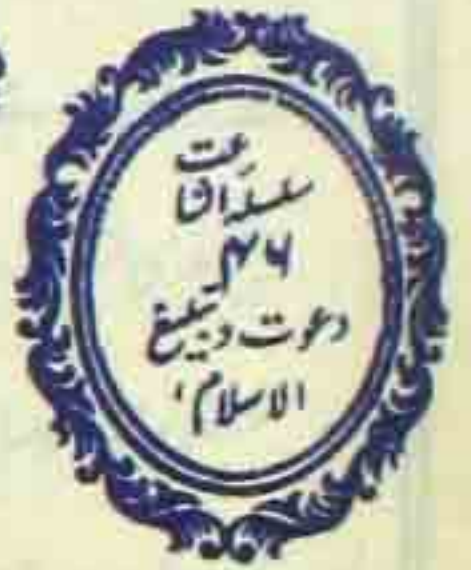 سلسلہ اشاعت
۴۶
دعوت و تبلیغ
الاسلام،